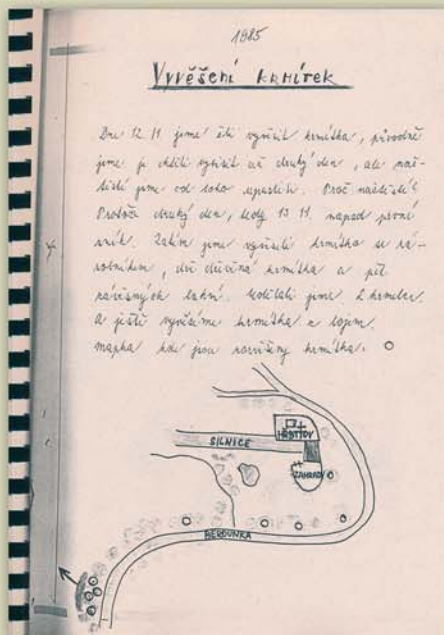 1985
Vyvěšení krmítek
Dne 12.11. jsme šli vyvěsit krmítka, původně
jsme je chtěli vyvěsit až druhý den, ale naš-
těstí jsme od toho upustili. Proč naštěstí?
Protože druhý den, tedy 13.11. napad první
sníh. Zatím jsme vyvěsili krmítka se
, dvě dřevěná krmítka a pět
závěsných lahví. jsme 2 krmelce.
A ještě vyvěsíme krmítka s lojem.
mapka kde jsou rozvěšeny krmítka. O
HŘBITOV
SILNICE
ZAHRADY
BEROUNKA